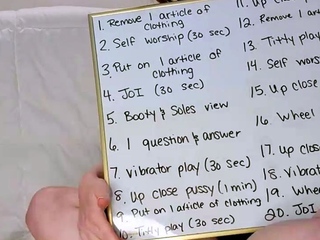 1. Remove 1 article of
clothing
2. Self worship (30 sec)
3. Put on 1 article of
clothing
4. JOI (30 sec)
5. Booty & Soles view
6. 1 question & answer
7. Vibrator play (30 sec)
8. Up close pussy (1 min)
9. Put on 1 article of clothing
10. Titty play (30 sec)
11. Up
12. Remove 1
13. Titty play
14. Self wors
15. Up close
16. Wheel
17. Up clos
18. Vibrat
19. Whe
20. JOI